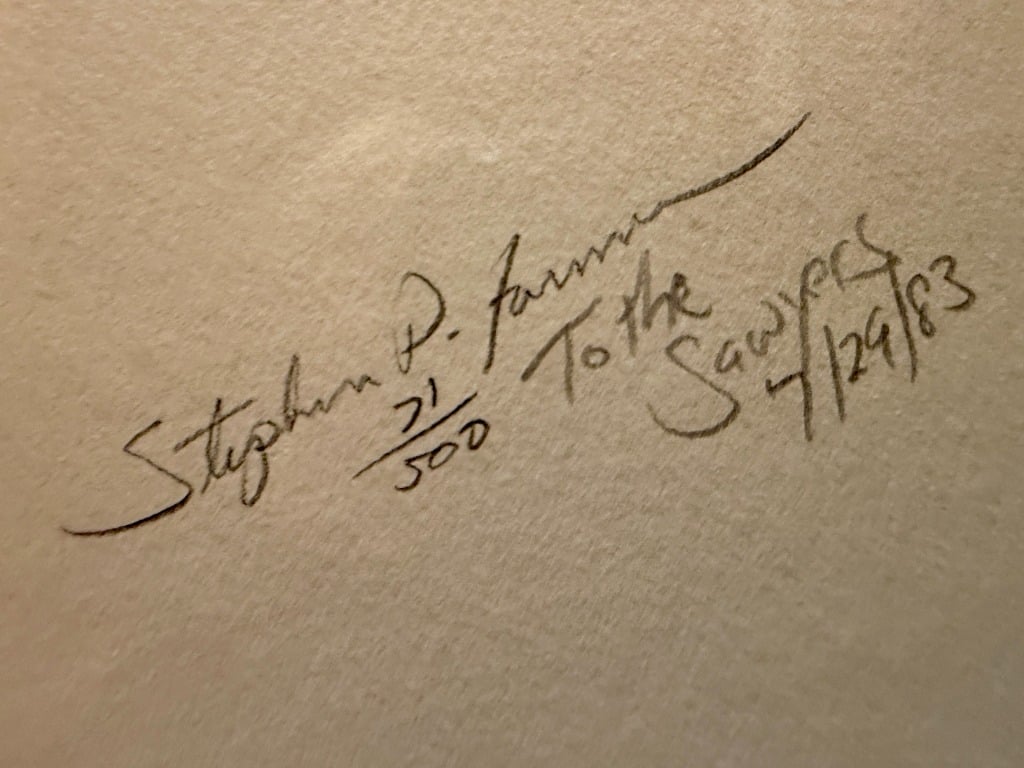 Stephen P. Farmer
71/500
To the
Sawyers
7/29/83